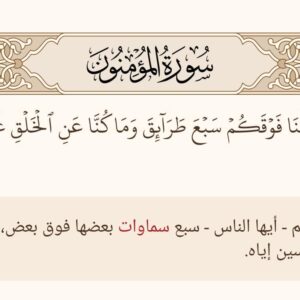 سُورَةُ الْمُؤْمِنُونَ
نَا فَوْقَكُمْ سَبْعَ طَرَآئِقَ وَمَا كُنَّا عَنِ ٱلْخَلْقِ
م - أيها الناس - سبع سماوات بعضها فوق بعض،
سين إياه.